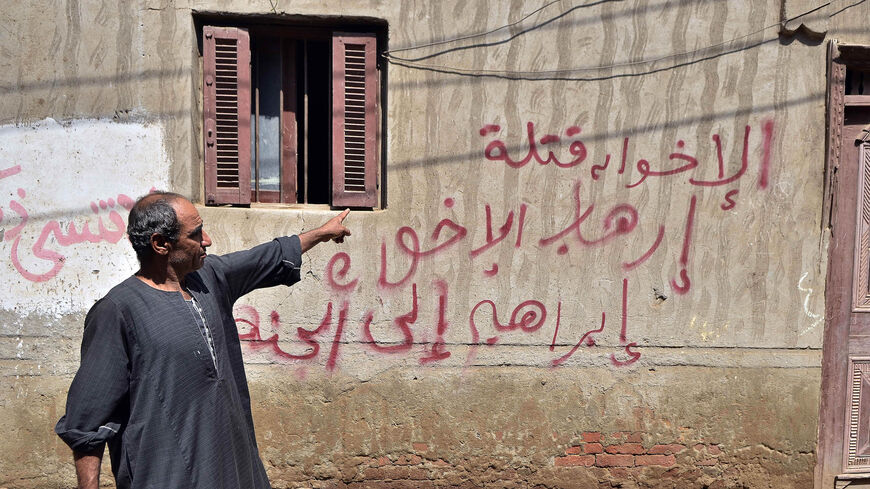 الإخوان قتلة
إرهاب الإخوان
إبراهيم إلى الجنة